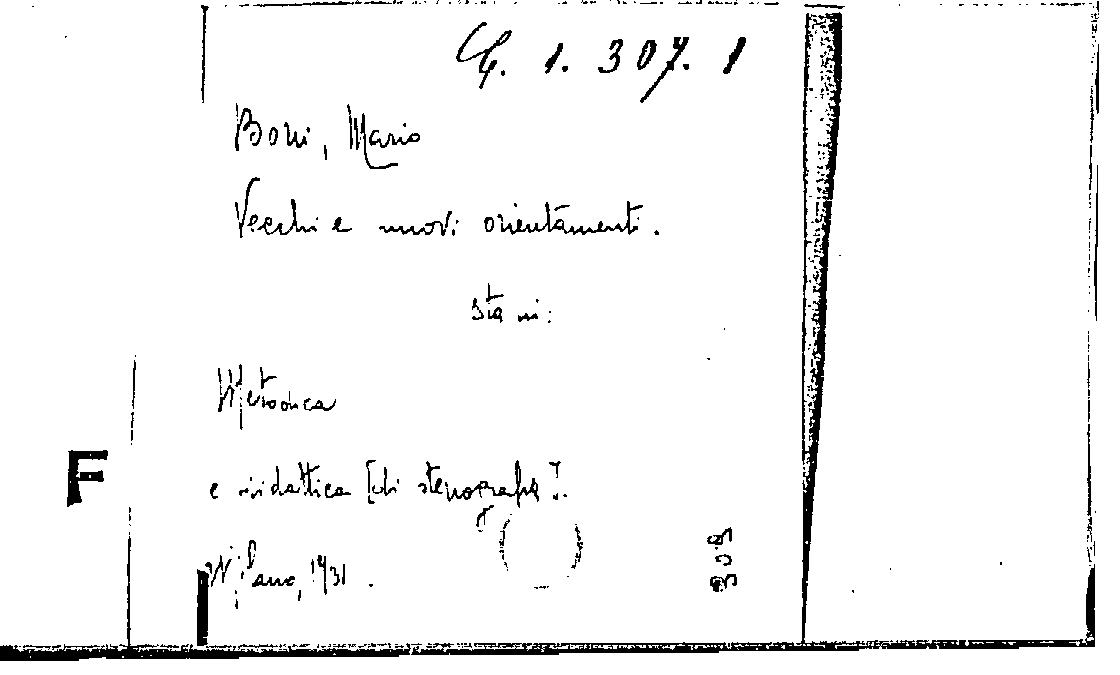 G. 1. 307. 1
Boni, Mario
Vecchi e nuovi orientamenti.
Sta in:
Metodica
F
e didattica [di stenografia].
Milano, 1931.
308